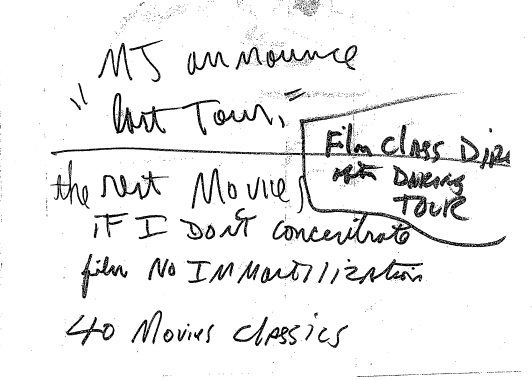 MJ announce
"last Tour,"
Film class Dire
often DURING
TOUR
the rest Movies
IF I DONT concentrate
film NO IMMortilization
40 Movies classics